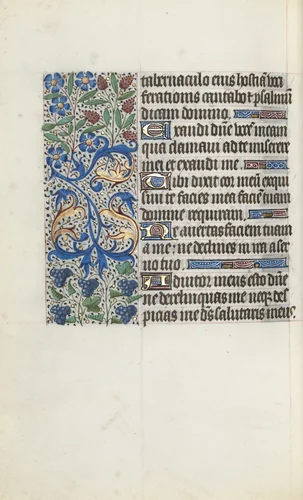 tabernaculo eius hostiā vo
ferationis cantabo et psalmū
dicam domino.
Exaudi dn̄e vocē meam
qua clamaui ad te miserere
mei et exaudi me.
Tibi dixit cor meū exqui
siuit te facies mea faciē tuam
domine requiram.
Ne auertas faciem tuam
a me: ne declines in ira a ser
uo tuo.
Adiutor meus esto dn̄e
ne derelinquas me neqꝫ des
picias me ds̄ salutaris meus.